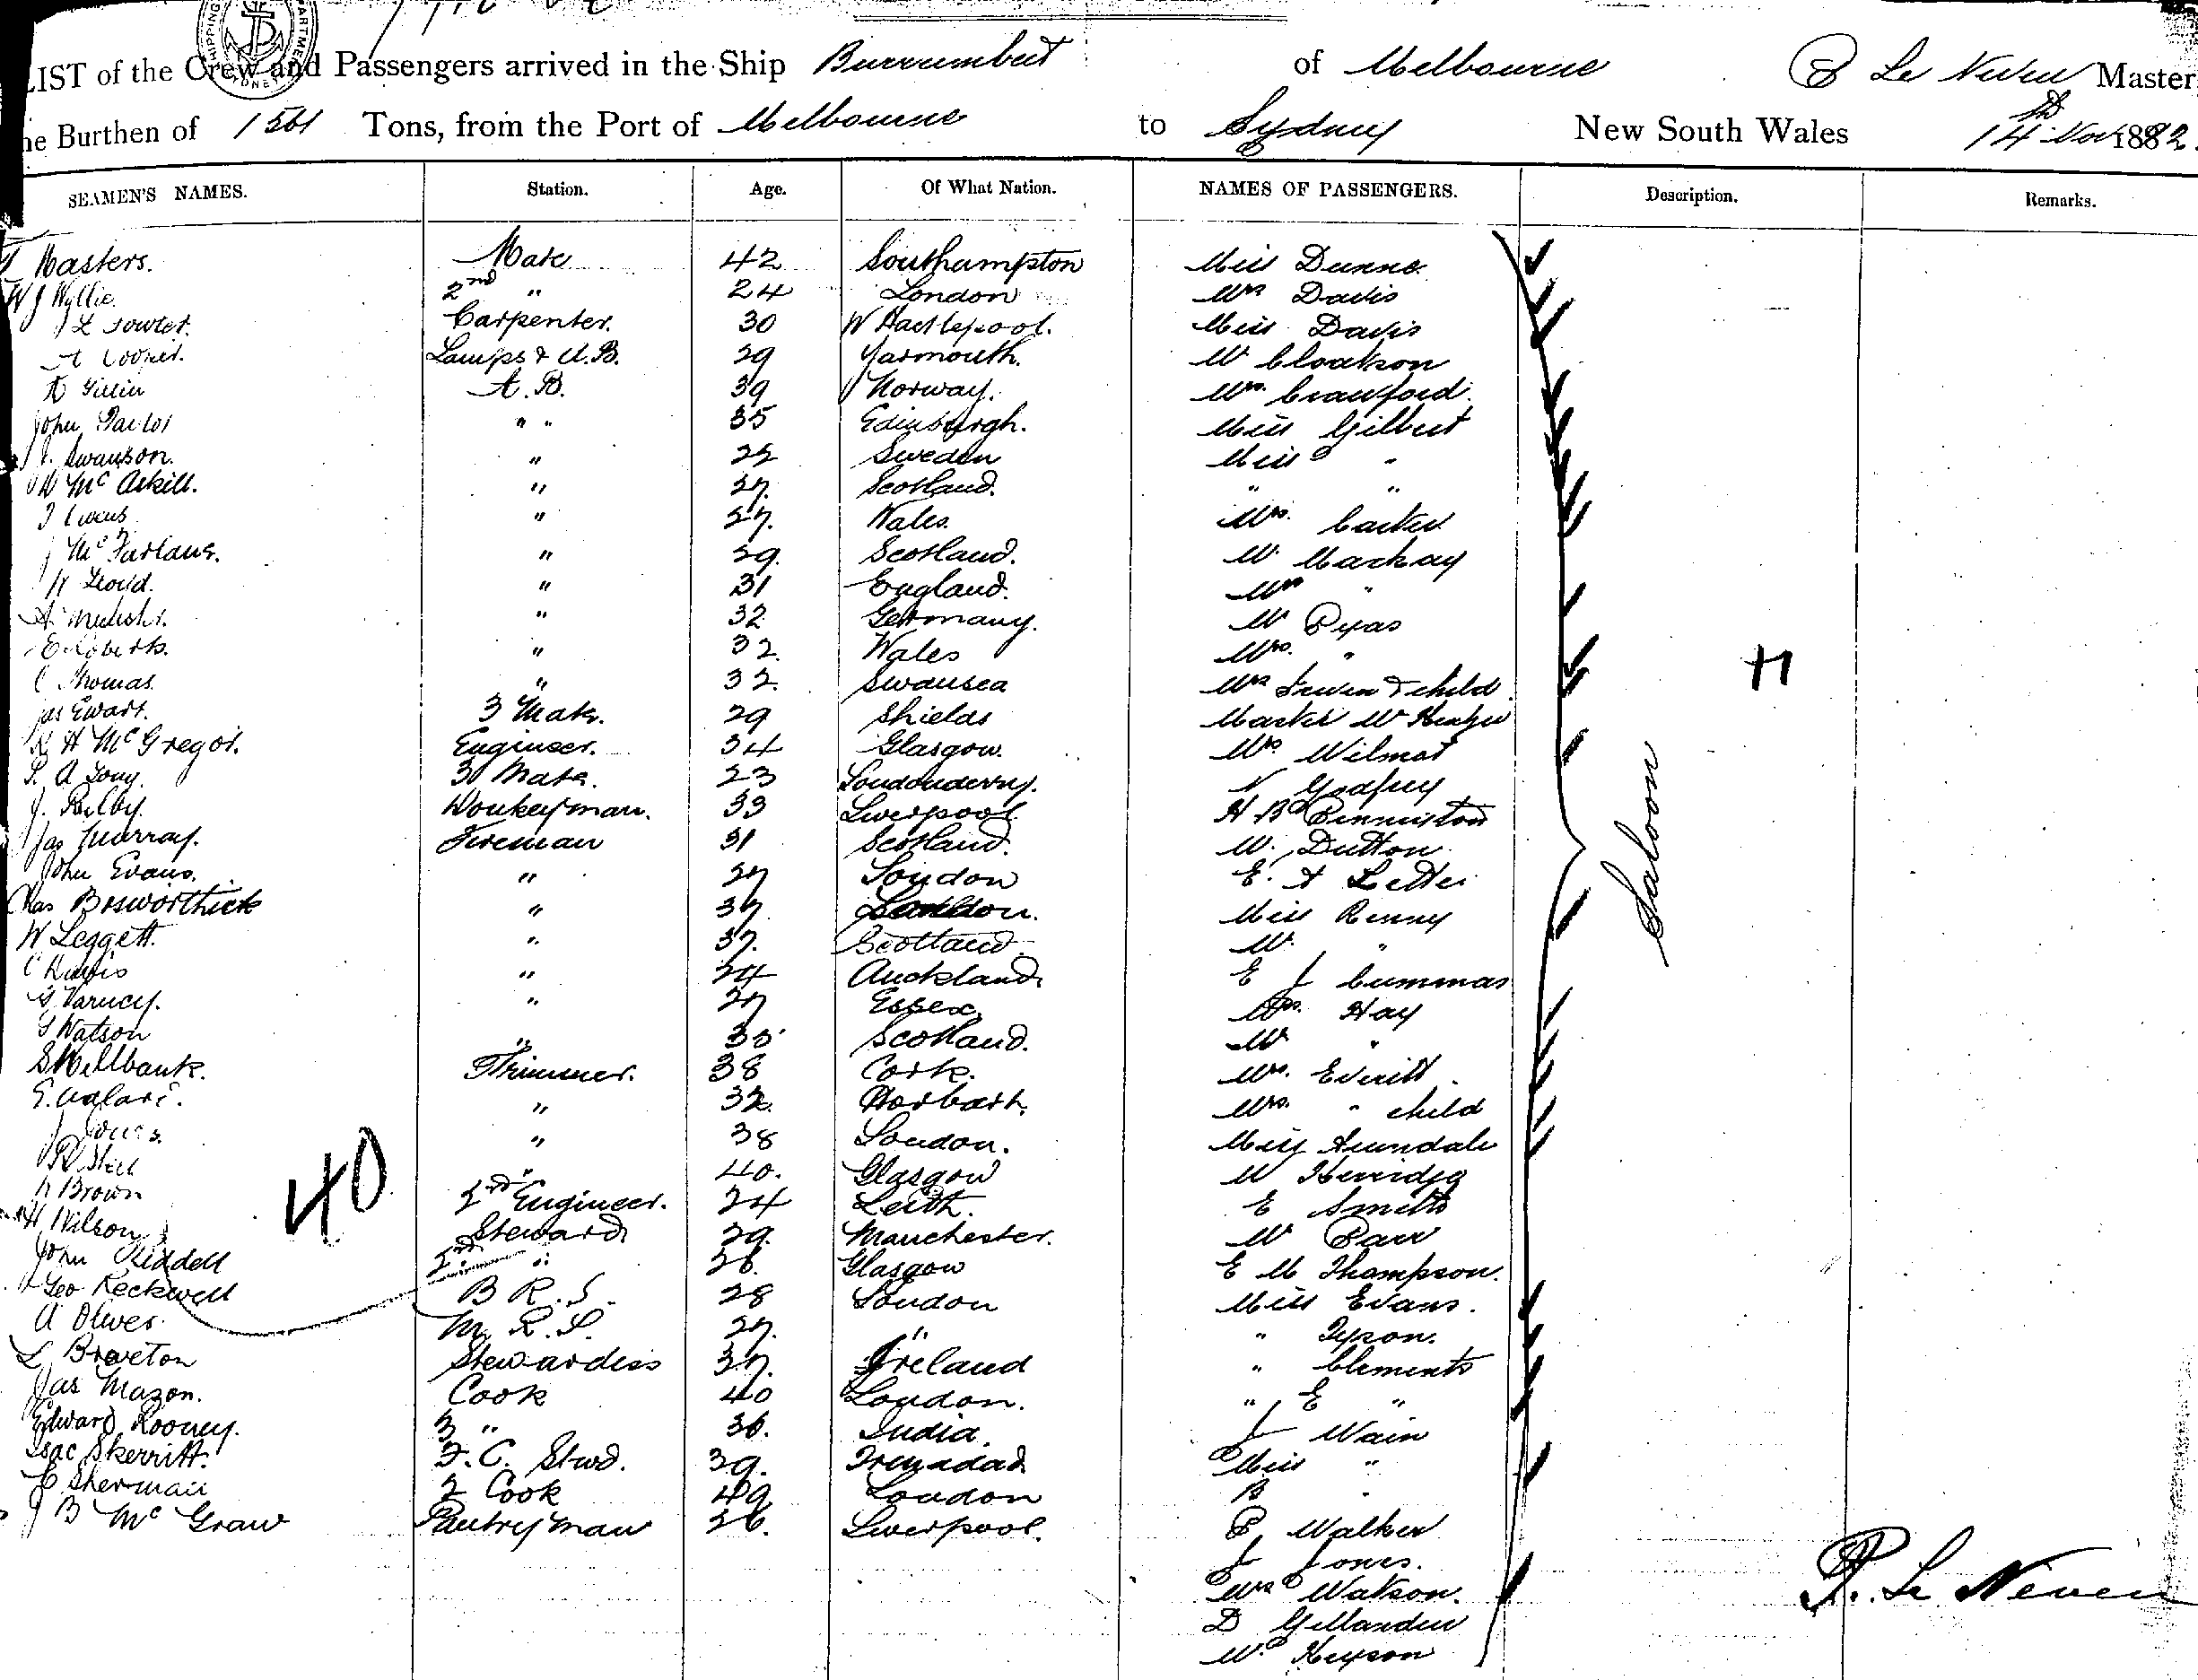 LIST of the Crew and Passengers arrived in the Ship Burrumbeet of Melbourne P Le Neven Master
he Burthen of Tons, from the Port of Melbourne to Sydney New South Wales 14th Nov 1882.
SEAMEN'S NAMES. Station. Age. Of What Nation. NAMES OF PASSENGERS. Description. Remarks.
Masters. Mate 42 Southampton Miss Dunne
W J Wyllie. 2nd " 24 London Mrs Davis
Fowler. Carpenter. 30 W Hartlepool. Miss Davis
A Cooper. Lamps & A.B. 29 Yarmouth. Mr
A.B. 39 Norway. Mrs. Crawford.
John " " 35 Edinburgh. Miss Gilbert
J. Swanson. " 25 Sweden Miss "
Mc Askill. " 27. Scotland. " "
Owens " 27. Wales. Mrs. Carter
J McFarlane. " 29. Scotland. Mr Mackay
" 31 England. Mrs "
A " 32 Germany. Mr Pyas
E Roberts. " 32. Wales Mrs. "
C Thomas. " 32. Swansea Mrs & child.
Jas Ewart. 3 Mate. 29 Shields Master
R H McGregor. Engineer. 34 Glasgow. Mrs Wilmot
A Long. 3 Mate. 23 Londonderry. Godfrey
J. Donkeyman. 33 Liverpool H B Penniston
Jas Murray. Fireman 31 Scotland. W. Dutton.
John Evans. " 27 London E. A
Chas Bosworthick " 37 London. Miss Renny
W Leggett. " 37. Scotland Mr. "
C Davis " 24 Auckland E J Cummas
G Varney. " 27 Essex. Mrs. Hay
Watson " 30 Scotland. Mr "
S Millbank. Trimmer. 38 Cork. Mr. Everitt.
" 32. Horbart. Mrs. " child
J Jones. " 38 London. Miss Arundale
R Steel " 40. Glasgow Mr Herridge
Brown 2nd Engineer. 24 Leith. E Smith
H Wilson Steward 29. Manchester. Mr Parr
John Riddell 2nd " 26. Glasgow E M Thompson.
Geo Reckwell B R. S. 28 London Miss Evans.
A Olives. M. R. S. 27. " " Tyson.
L Breveton Stewardess 37. Ireland " Clements
Jas Mazon. Cook 40 London. " E "
Edward Rooney. 3 " 36. India. J Wain
Isac Skerritt. F. C. Stwd. 39. Trinadad Miss "
E Sherman 2 Cook 49 London B "
J B McGraw Pantryman 26. Liverpool. P. Walker
J Jones.
Mrs Watson.
D Gillanden
W. Keyson
40
Saloon
H
P. Le Neven